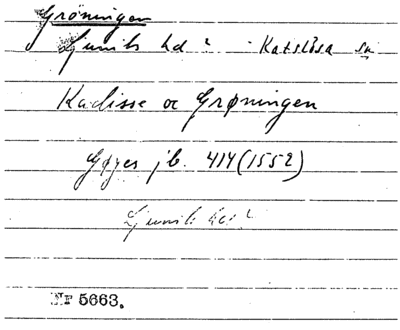 Grøningen
Ljunits hd? Katslösa sn
Kadisse oc Grøningen
Gøyes jb. 414 (1552)
Ljunits hd?
Nr 5663.